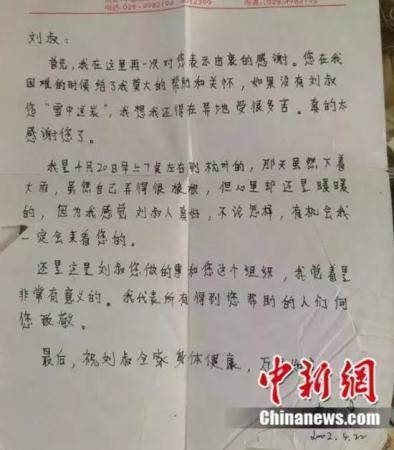 刘叔：
首先，我在这里再一次对您表示由衷的感谢。您在我
困难的时候给了我莫大的帮助和关怀，如果没有刘叔
您"雪中送炭"，我想我还得在异地受很多苦。真的太
感谢您了。
我是4月20日早上7点左右到杭州的，那天虽然下着
大雨，虽然自己弄得很狼狈，但心里却还是暖暖
的，因为我感觉刘叔人真好，不论怎样，有机会我
一定会来看您的。
还是这是刘叔您做的事和您这个组织，我觉着是
非常有意义的。我代表所有得到您帮助的人们向
您致敬。
最后，祝刘叔全家身体健康，万
中新網
Chinanews.com
2002.4.22